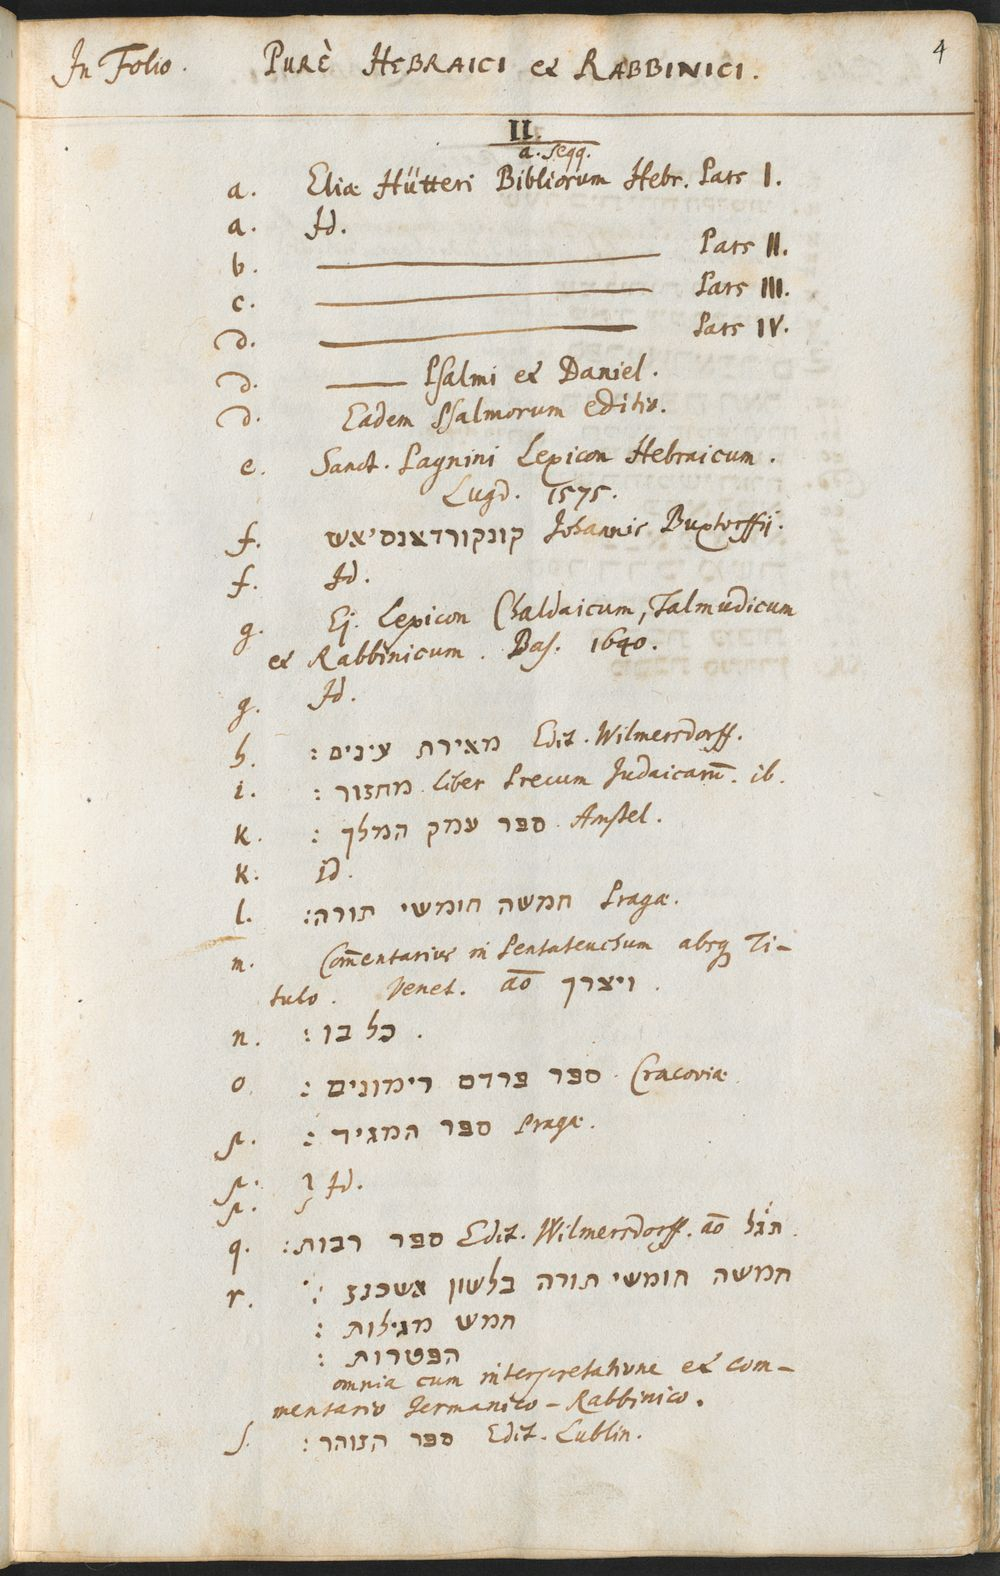 4
In Folio. PURÈ HEBRAICI & RABBINICI.
II.
a. seqq.
a. Eliæ Hütteri Bibliorum Hebr. Pars I.
a. Id.
b. Pars II.
c. Pars III.
d. Pars IV.
d. Psalmi & Daniel.
d. Eadem Psalmorum editio.
e. Sanct. Pagnini Lexicon Hebraicum.
Lugd. 1575.
f. קונקורדאנסיאש Johannis Buxtorffij.
f. Id.
g. Ej. Lexicon Chaldaicum, Talmudicum
& Rabbinicum. Bas. 1640.
g. Id.
h. מאירת עינים : Edit. Wilmersdorff.
i. מחזור : liber Precum Judaicarū. ib.
k. ספר עמק המלך : Amstel.
k. id.
l. חמשה חומשי תורה: Pragæ.
m. Com̄entarius in Pentateuchum absq Ti-
tulo. Venet. aō ויצרך.
n. כל בו : .
o. ספר פרדס רימונים : Cracoviæ
p. ספר המגיד : Pragæ.
p. Id.
p.
q. ספר רבות: Edit. Wilmersdorff. aō
r. חמשה חומשי תורה בלשון אשכנז :
חמש מגילות :
הפטרות :
omnia cum interpretatione & com-
mentario Germanico-Rabbinico.
s. ספר הזוהר : Edit. Lublin.